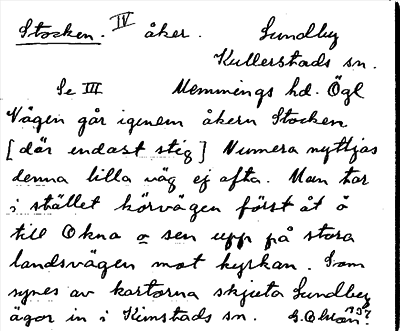 Stocken. IV åker. Sundby
Kullerstads sn.
Se III Memmings hd. Ögl
Vågen går igenem åkern Stocken
[där endast stig] Numera nyttjas
denna lilla väg ej ofta. Man tar
i stället körvägen först åt ö
till Okna o sen upp på stora
landsvägen mot kyrkan. Som
synes av kartorna skjuta Sundby
ägor in i Kimstads sn. G. Olson